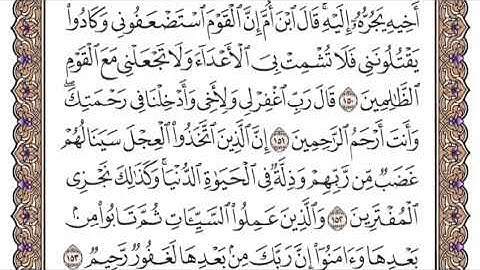 أَخِيهِ يَجُرُّهُۥٓ إِلَيْهِ ۚ قَالَ ٱبْنَ أُمَّ إِنَّ ٱلْقَوْمَ ٱسْتَضْعَفُونِى وَكَادُوا۟
يَقْتُلُونَنِى فَلَا تُشْمِتْ بِىَ ٱلْأَعْدَآءَ وَلَا تَجْعَلْنِى مَعَ ٱلْقَوْمِ
ٱلظَّـٰلِمِينَ ١٥٠ قَالَ رَبِّ ٱغْفِرْ لِى وَلِأَخِى وَأَدْخِلْنَا فِى رَحْمَتِكَ ۖ
وَأَنتَ أَرْحَمُ ٱلرَّٰحِمِينَ ١٥١ إِنَّ ٱلَّذِينَ ٱتَّخَذُوا۟ ٱلْعِجْلَ سَيَنَالُهُمْ
غَضَبٌ مِّن رَّبِّهِمْ وَذِلَّةٌ فِى ٱلْحَيَوٰةِ ٱلدُّنْيَا ۚ وَكَذَٰلِكَ نَجْزِى
ٱلْمُفْتَرِينَ ١٥٢ وَٱلَّذِينَ عَمِلُوا۟ ٱلسَّيِّـَٔاتِ ثُمَّ تَابُوا۟ مِنۢ
بَعْدِهَا وَءَامَنُوٓا۟ إِنَّ رَبَّكَ مِنۢ بَعْدِهَا لَغَفُورٌ رَّحِيمٌ ١٥٣